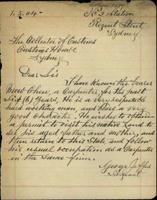 No 3 Station
Regent Street
Sydney
The Collector of Customs
Customs House
Sydney
Dear Sir
I have known the bearer
a Carpenter for the past
Six (6) years. He is a very
hard working man, and bears a very
good character. He wishes to obtain
a permit to visit his native land to
see his aged father and mother, and
then return to this State and follow
his usual occupation as a Carpenter
in the same firm.
George
Sergeant